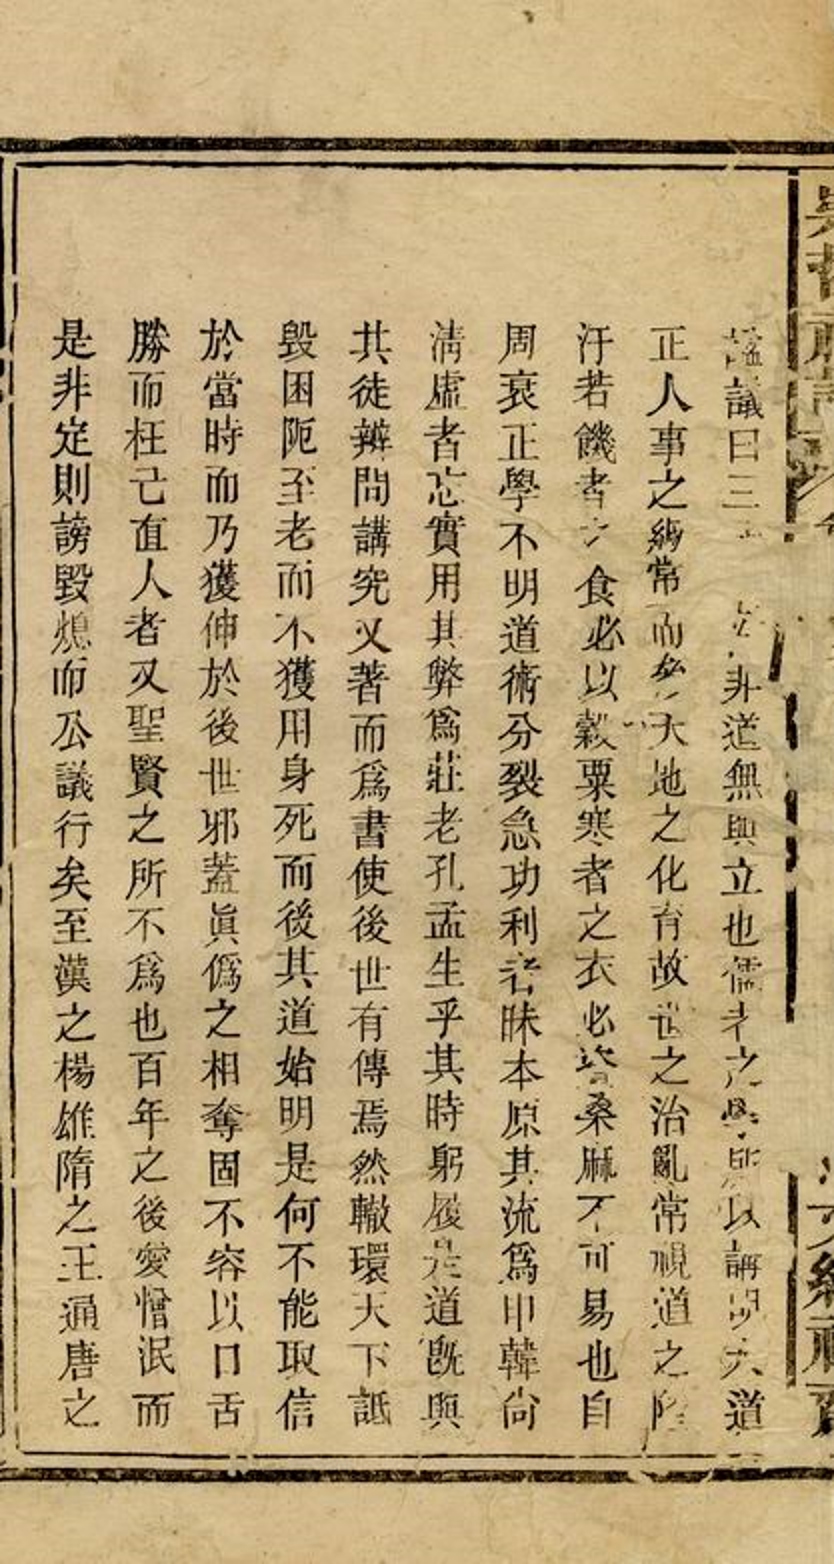 謚議曰三非道無與立也儒者之學所以講明大道
正人事之綱常而參天地之化育故世之治亂常視道之
汙若饑者之食必以穀粟寒者之衣必資桑麻不可易也自
周衰正學不明道術分裂急功利者昧本原其流爲申韓尚
淸虛者忘實用其弊爲莊老孔孟生乎其時躬履是道旣與
其徒辨問講究又著而爲書使後世有傳焉然轍環天下詆
毀困阨至老而不獲用身死而後其道始明是何不能取信
於當時而乃獲伸於後世邪蓋眞僞之相奪固不容以口舌
勝而枉己直人者又聖賢之所不爲也百年之後愛憎泯而
是非定則謗毀熄而公議行矣至漢之楊雄隋之王通唐之